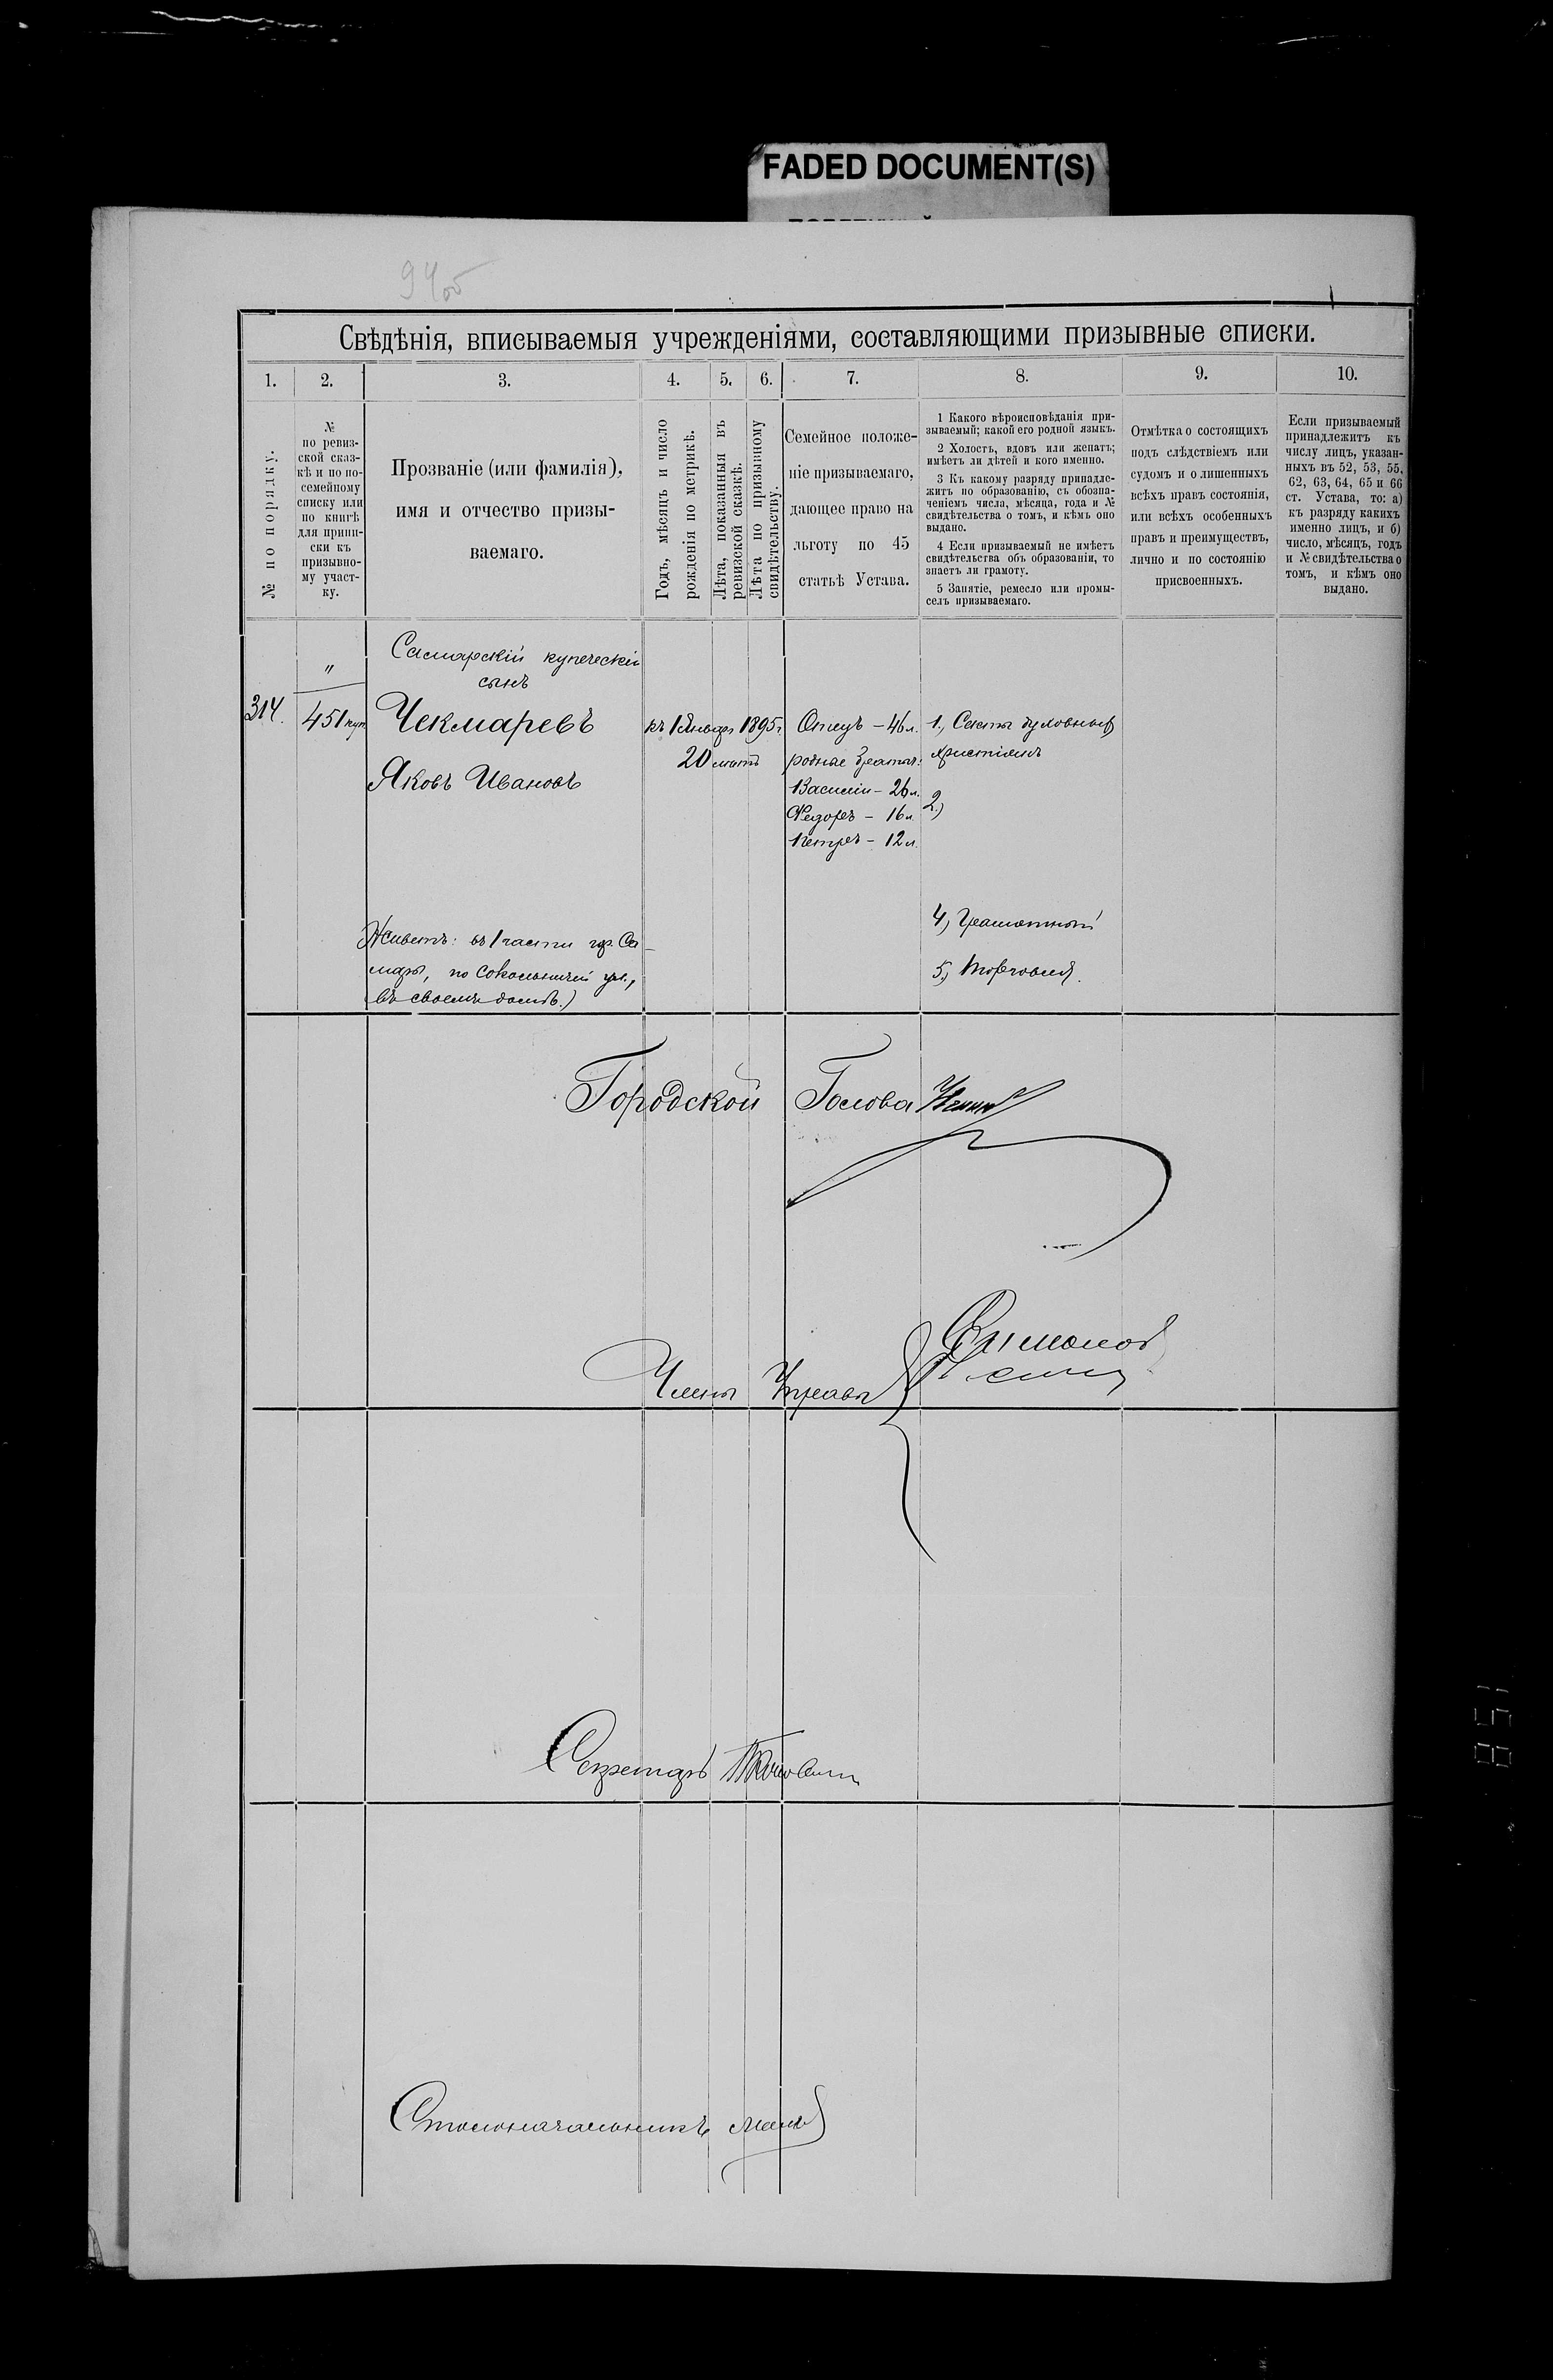 FADED DOCUMENT(S)
94об
Свѣдѣнія, вписываемыя учрежденіями, составляющими призывные списки.
1. 2. 3. 4. 5. 6. 7. 8. 9. 10.
№ по порядку.
№
по ревиз-
ской сказ-
кѣ и по по-
семейному
списку или
по книгѣ
для припи-
ски къ
призывно-
му участ-
ку.
Прозваніе (или фамилія),
имя и отчество призы-
ваемаго.
Годъ, мѣсяцъ и число
рожденія по метрикѣ.
Лѣта, показанныя въ
ревизской сказкѣ.
Лѣта по призывному
свидѣтельству.
Семейное положе-
ніе призываемаго,
дающее право на
льготу по 45
статьѣ Устава.
1 Какого вѣроисповѣданія при-
зываемый; какой его родной языкъ.
2 Холостъ, вдовъ или женатъ;
имѣетъ ли дѣтей и кого именно.
3 Къ какому разряду принадле-
житъ по образованію, съ обозна-
ченіемъ числа, мѣсяца, года и №
свидѣтельства о томъ, и кѣмъ оно
выдано.
4 Если призываемый не имѣетъ
свидѣтельства объ образованіи, то
знаетъ ли грамоту.
5 Занятіе, ремесло или промы-
селъ призываемаго.
Отмѣтка о состоящихъ
подъ слѣдствіемъ или
судомъ и о лишенныхъ
всѣхъ правъ состоянія,
или всѣхъ особенныхъ
правъ и преимуществъ,
лично и по состоянію
присвоенныхъ.
Если призываемый
принадлежитъ къ
числу лицъ, указан-
ныхъ въ 52, 53, 55,
62, 63, 64, 65 и 66
ст. Устава, то: а)
къ разряду какихъ
именно лицъ, и б)
число, мѣсяцъ, годъ
и № свидѣтельства о
томъ, и кѣмъ оно
выдано.
314.
"
451 куп
Самарскій купеческій
сынъ
Чекмаревъ
Яковъ Ивановъ
Живетъ: въ 1 части гор. Са-
мары, по Сокольничей ул.,
въ своемъ домѣ.)
къ 1 Января 1895 г.
20 лѣтъ
Отецъ – 46 л.
родные братья:
Василій – 26 л.
Федоръ – 16 л.
Петръ – 12 л.
1., Секты духовныхъ
христіанъ
2.)
4., Грамотный
5., Торговля.
Городской Голова
Члены Управы
Секретарь
Столоначальникъ
158